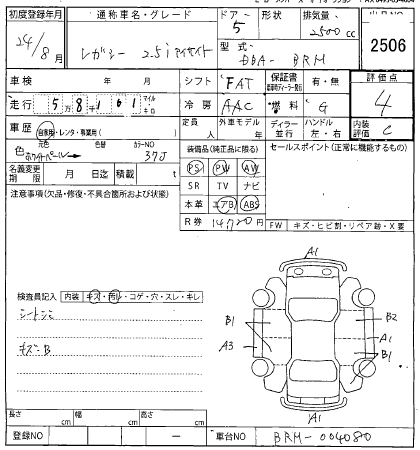 初度登録年月 通称車名・グレード ドア 形状 排気量
24/8月 レガシー 2.5i アイサイト 5 2500 cc
型式 DBA- BRM
2506
車検 年 月 シフト FAT 保証書 有・無 評価点
走行 5万8千161 マイル キロ 冷房 AAC 燃料 G 4
車歴 自家用・レンタ・事業用( ) 定員 人 外車モデル 年 ディーラー 並行 ハンドル 左・右 内装評価 C
色 元色 色替 カラーNO
ホワイトパール 37J
装備品(純正品に限る) セールスポイント(正常に機能するもの)
名義変更期限 月 日迄 積載 t
PS PW AW
注意事項(欠品・修復・不具合箇所および状態)
SR TV ナビ
本革 エアB ABS
R券 14,720円
FW キズ・ヒビ割・リペア跡・X要
検査員記入 内装 キズ・汚レ・コゲ・穴・スレ・キレ
シートシミ
キズ-B
A1
B1 B2
A3 A1
B1
A1
長さ cm 幅 cm 高さ cm
登録NO — 車台NO BRM-004080